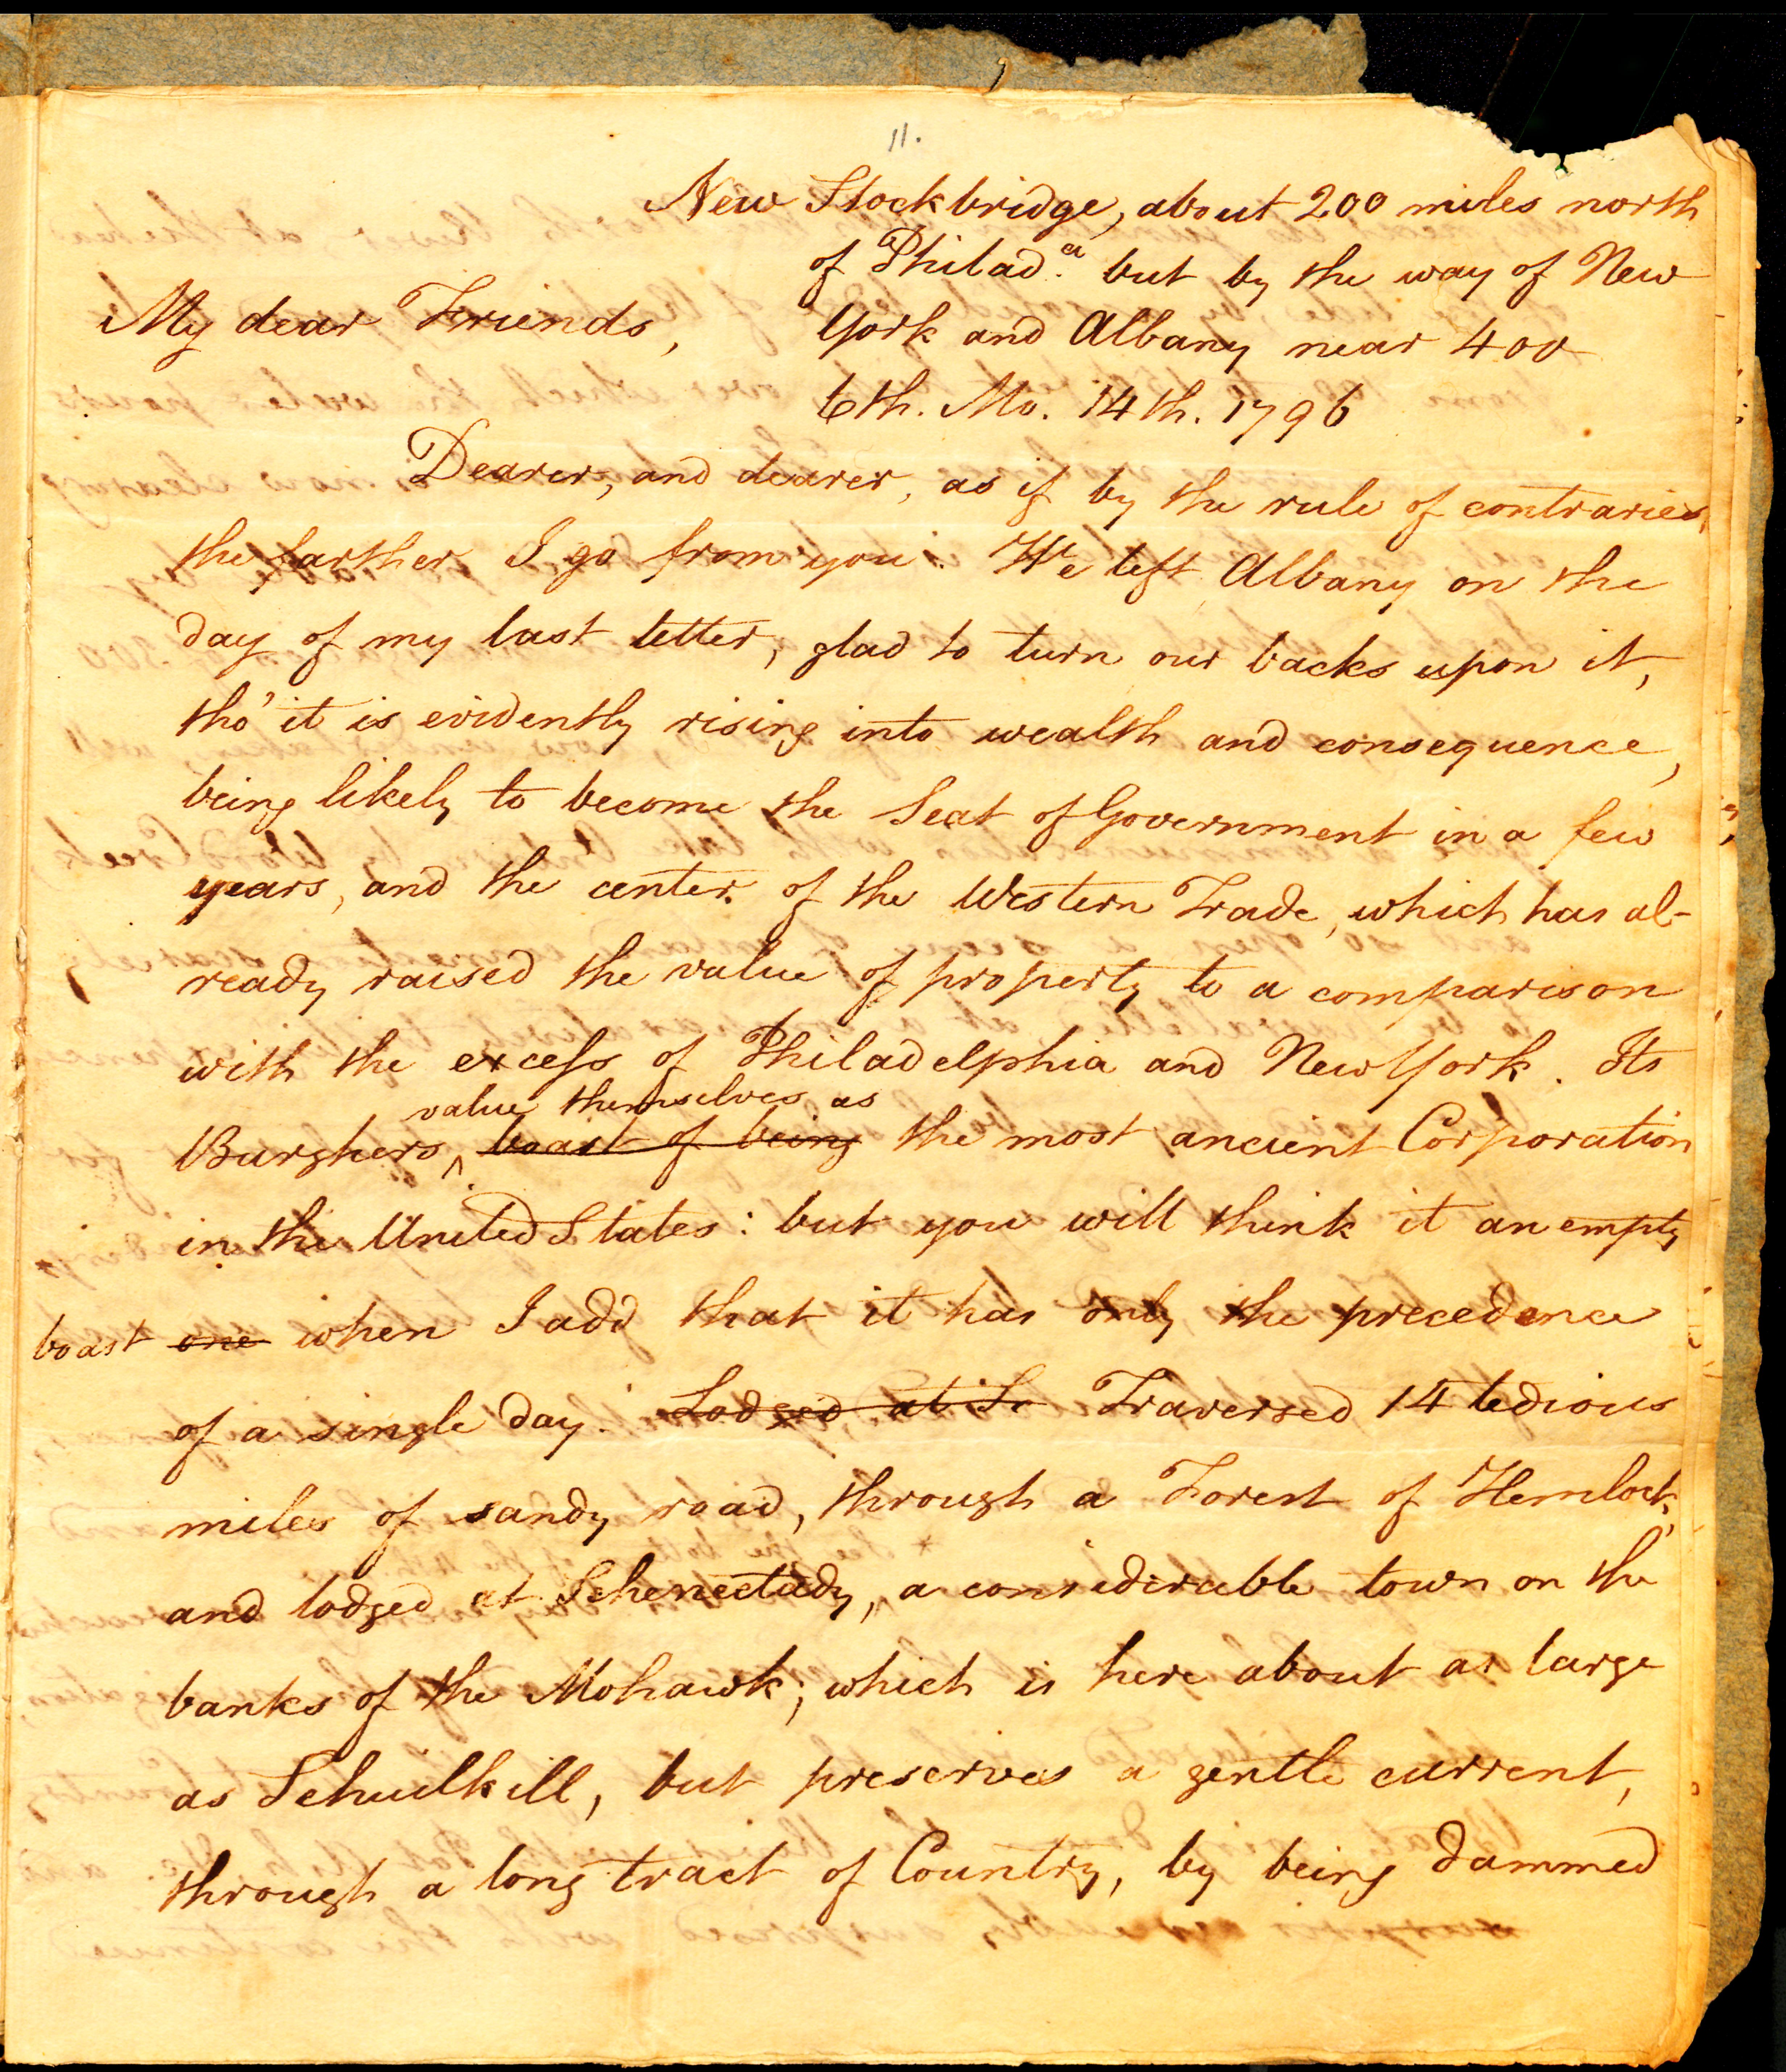 11.
New Stockbridge, about 200 miles north
of Philad.a but by the way of New
My dear Friends,
York and Albany near 400
6th. Mo. 14th. 1796
Dearer, and dearer, as if by the rule of contraries,
the farther I go from you. We left Albany on the
day of my last letter, glad to turn our backs upon it,
tho' it is evidently rising into wealth and consequence,
being likely to become the Seat of Government in a few
years, and the center of the Western Trade, which has al-
ready raised the value of property to a comparison
with the excess of Philadelphia and New York. Its
value themselves as
Burghers ^ boast of being the most ancient Corporation
in the United States: but you will think it an empty
boast one when I add that it has only the precedence
of a single day. Lodged at S. Traversed 14 tedious
miles of sandy road, through a Forest of Hemlock,
and lodged at Schenectady, a considerable town on the
banks of the Mohawk; which is here about as large
as Schuilkill, but preserves a gentle current,
through a long tract of Country, by being dammed